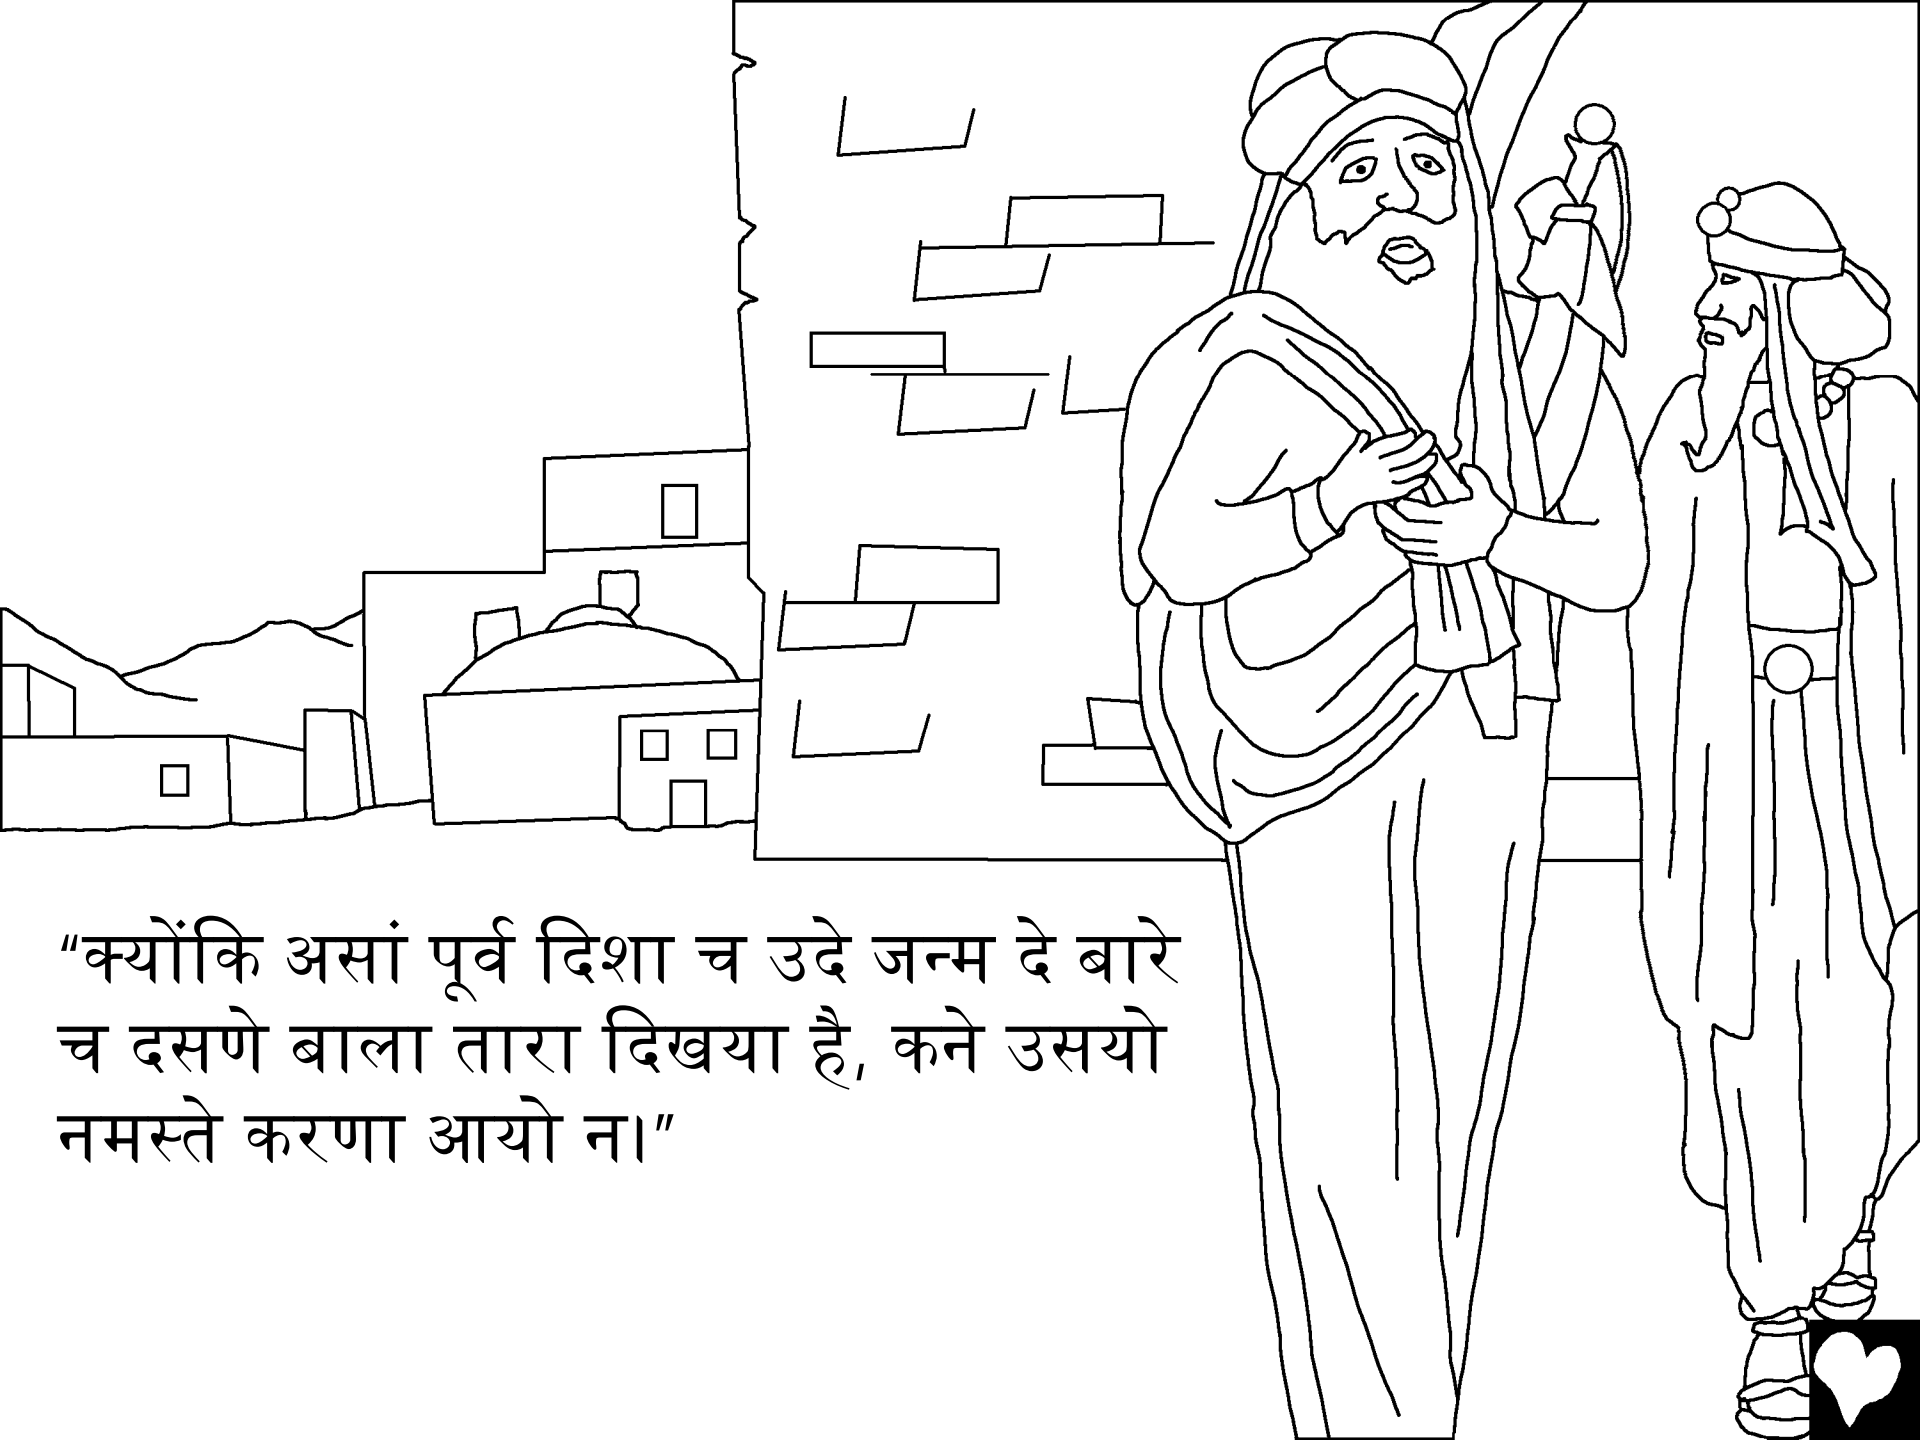 “क्योंकि असां पूर्व दिशा च उदे जन्म दे बारे
च दसणे बाला तारा दिखया है, कने उसयो
नमस्ते करणा आयो न।”